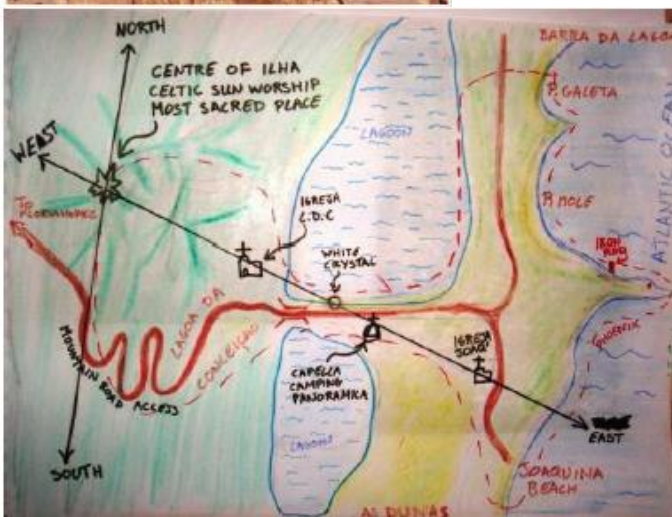 NORTH
CENTRE OF ILHA
CELTIC SUN WORSHIP
MOST SACRED PLACE
WEAST
TO
BARRA DA LAGOA
P. GALETA
P. MOLE
ATLANTIC OCEAN
LAGOON
IGREGA
L.D.C
WHITE
CRYSTAL
LAGOA DA
CONCEICAO
MOUNTAIN ROAD ACCESS
CAPELLA
CAMPING
PANORAMICA
IGREJA
JOAQ'
LAGOON
EAST
SOUTH
JOAQUINA
BEACH
AS DUNAS